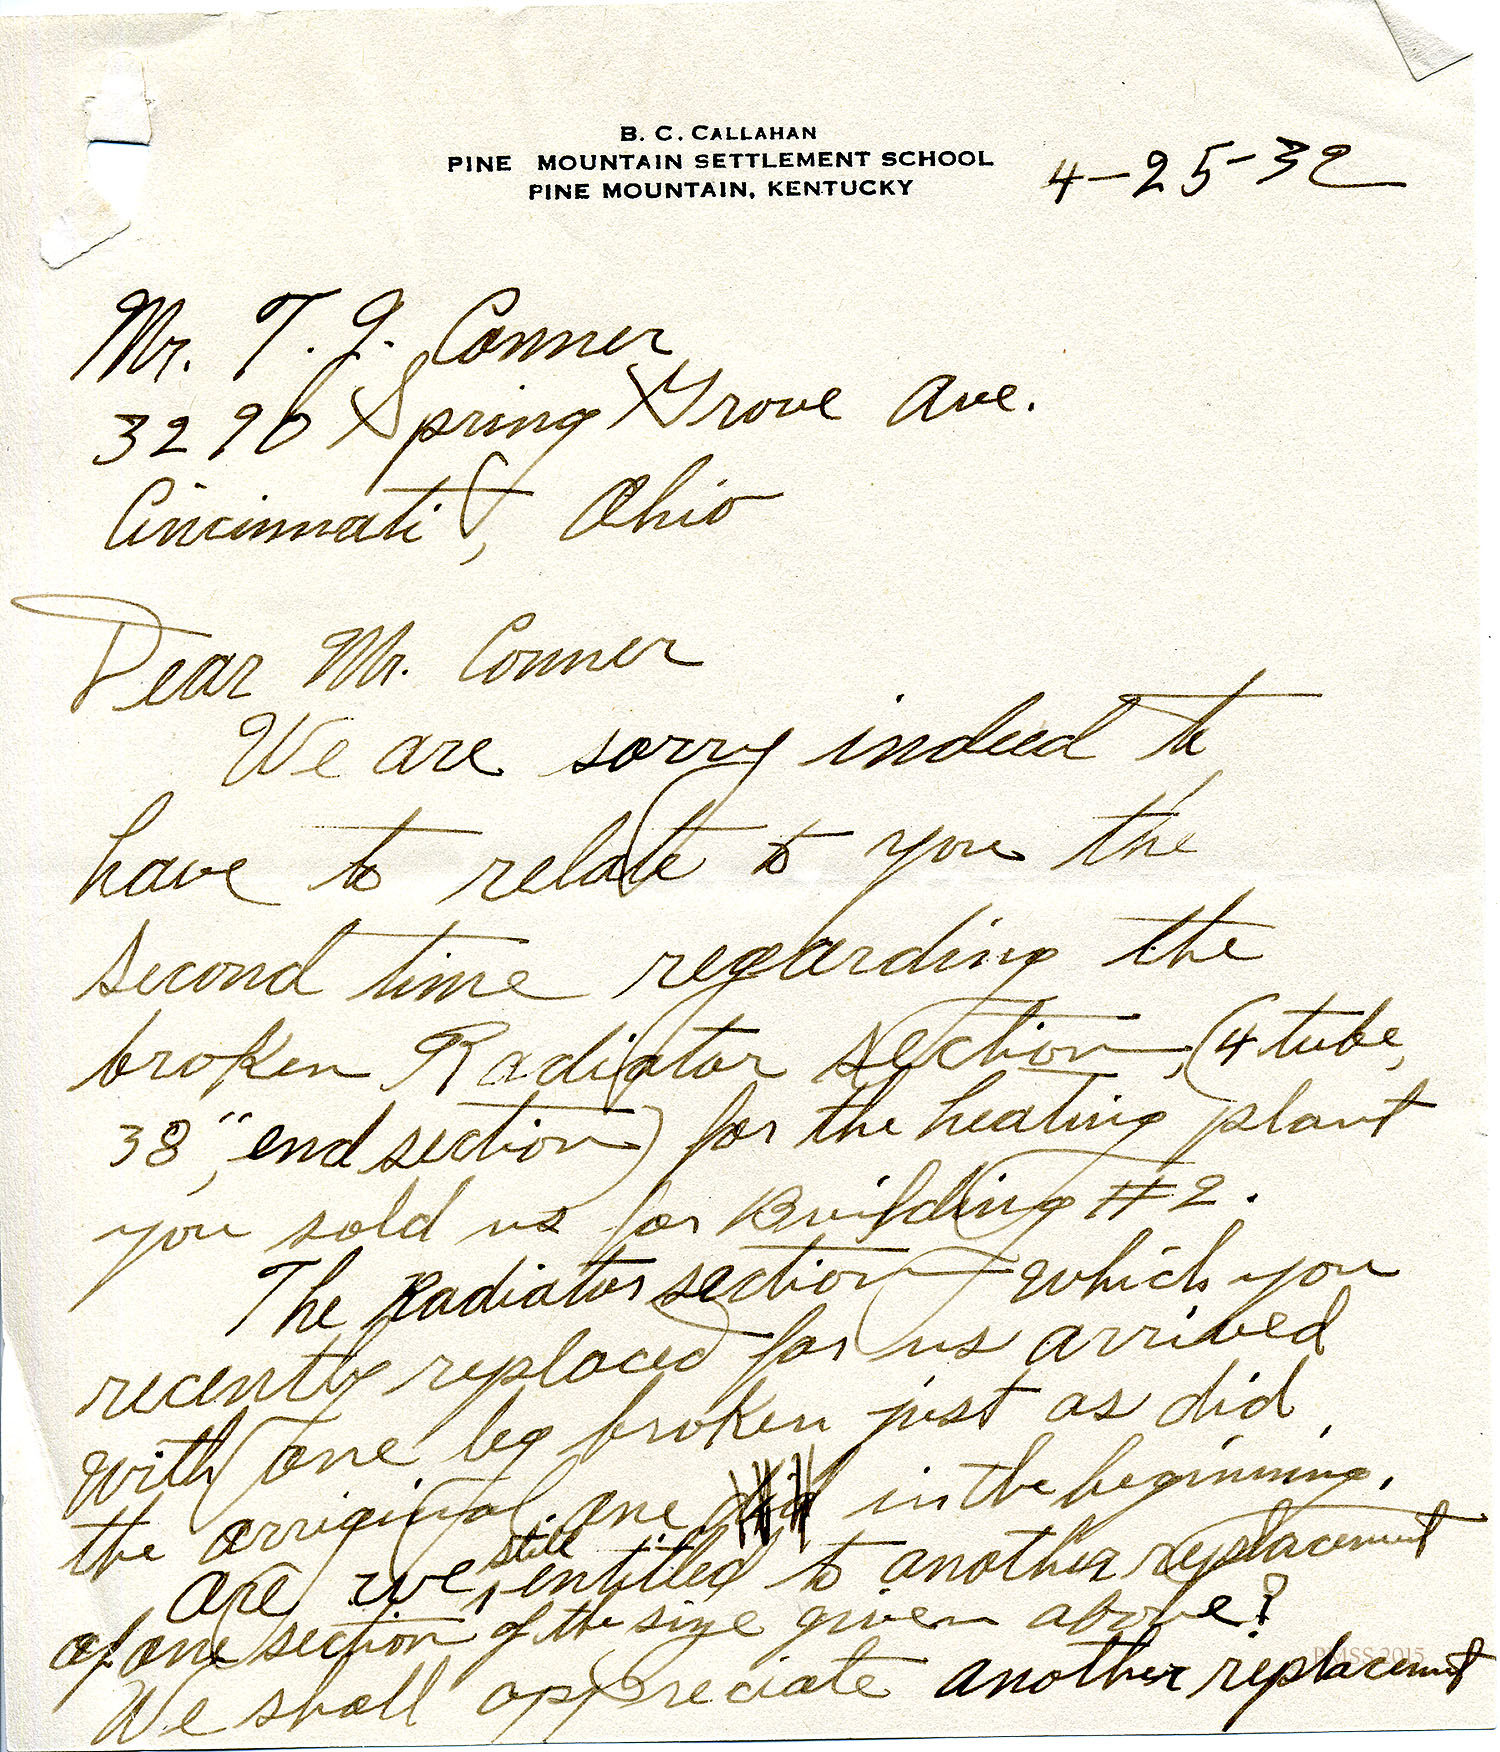 B. C. CALLAHAN
PINE MOUNTAIN SETTLEMENT SCHOOL
PINE MOUNTAIN, KENTUCKY
4-25-32
Mr. T. J. Conner
3290 Spring Grove Ave.
Cincinnati, Ohio
Dear Mr. Conner
We are sorry indeed to
have to relate to you the
second time regarding the
broken Radiator section, (4 tube,
38", end section) for the heating plant
you sold us for Building #2.
The Radiator section which you
recently replaced for us arrived
with one leg broken just as did
the orriginal one did in the beginning.
are we still entitled to another replacement
of one section of the size given above?
We shall appreciate another replacement
PMSS 2015